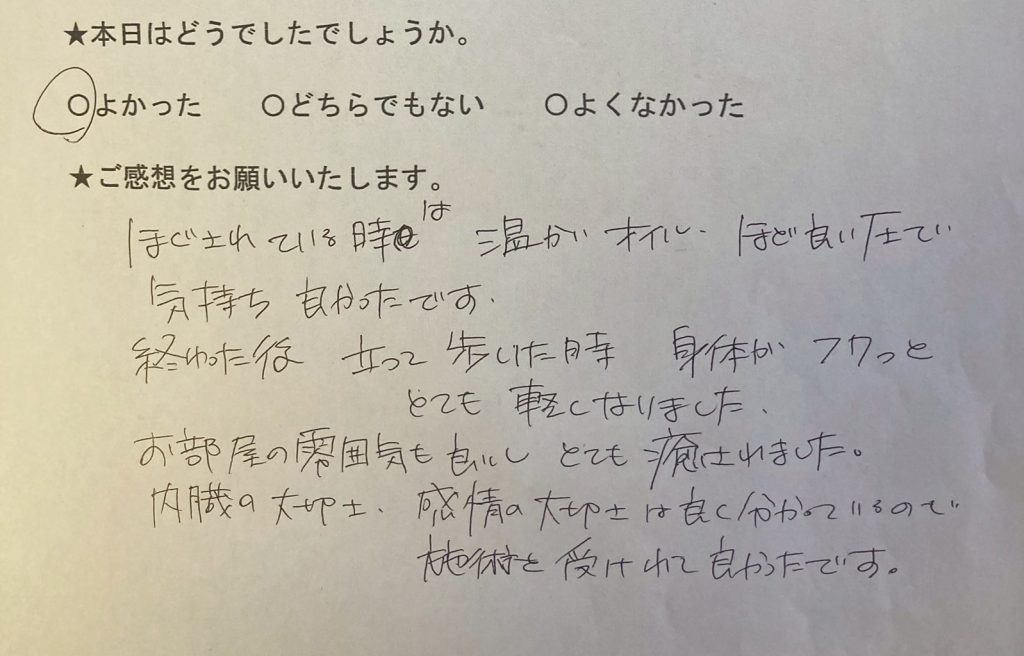 ★本日はどうでしたでしょうか。
○よかった ○どちらでもない ○よくなかった
★ご感想をお願いいたします。
ほぐされている時は 温かいオイル、ほど良い圧で
気持ち良かったです。
終わった後 立って歩いた時 身体がフワっと
とても軽くなりました。
お部屋の雰囲気も良いし とても癒されました。
内臓の大切さ、感情の大切さは良く分かっているので
施術を受けれて良かったです。